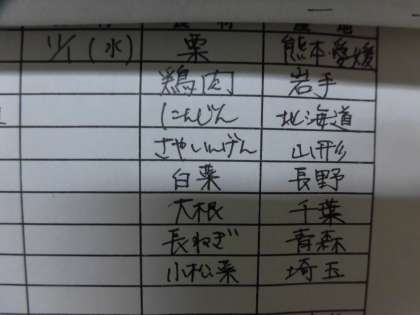 11/1 (水) 栗 熊本・愛媛
鶏肉 岩手
にんじん 北海道
さやいんげん 山形
白菜 長野
大根 千葉
長ねぎ 青森
小松菜 埼玉